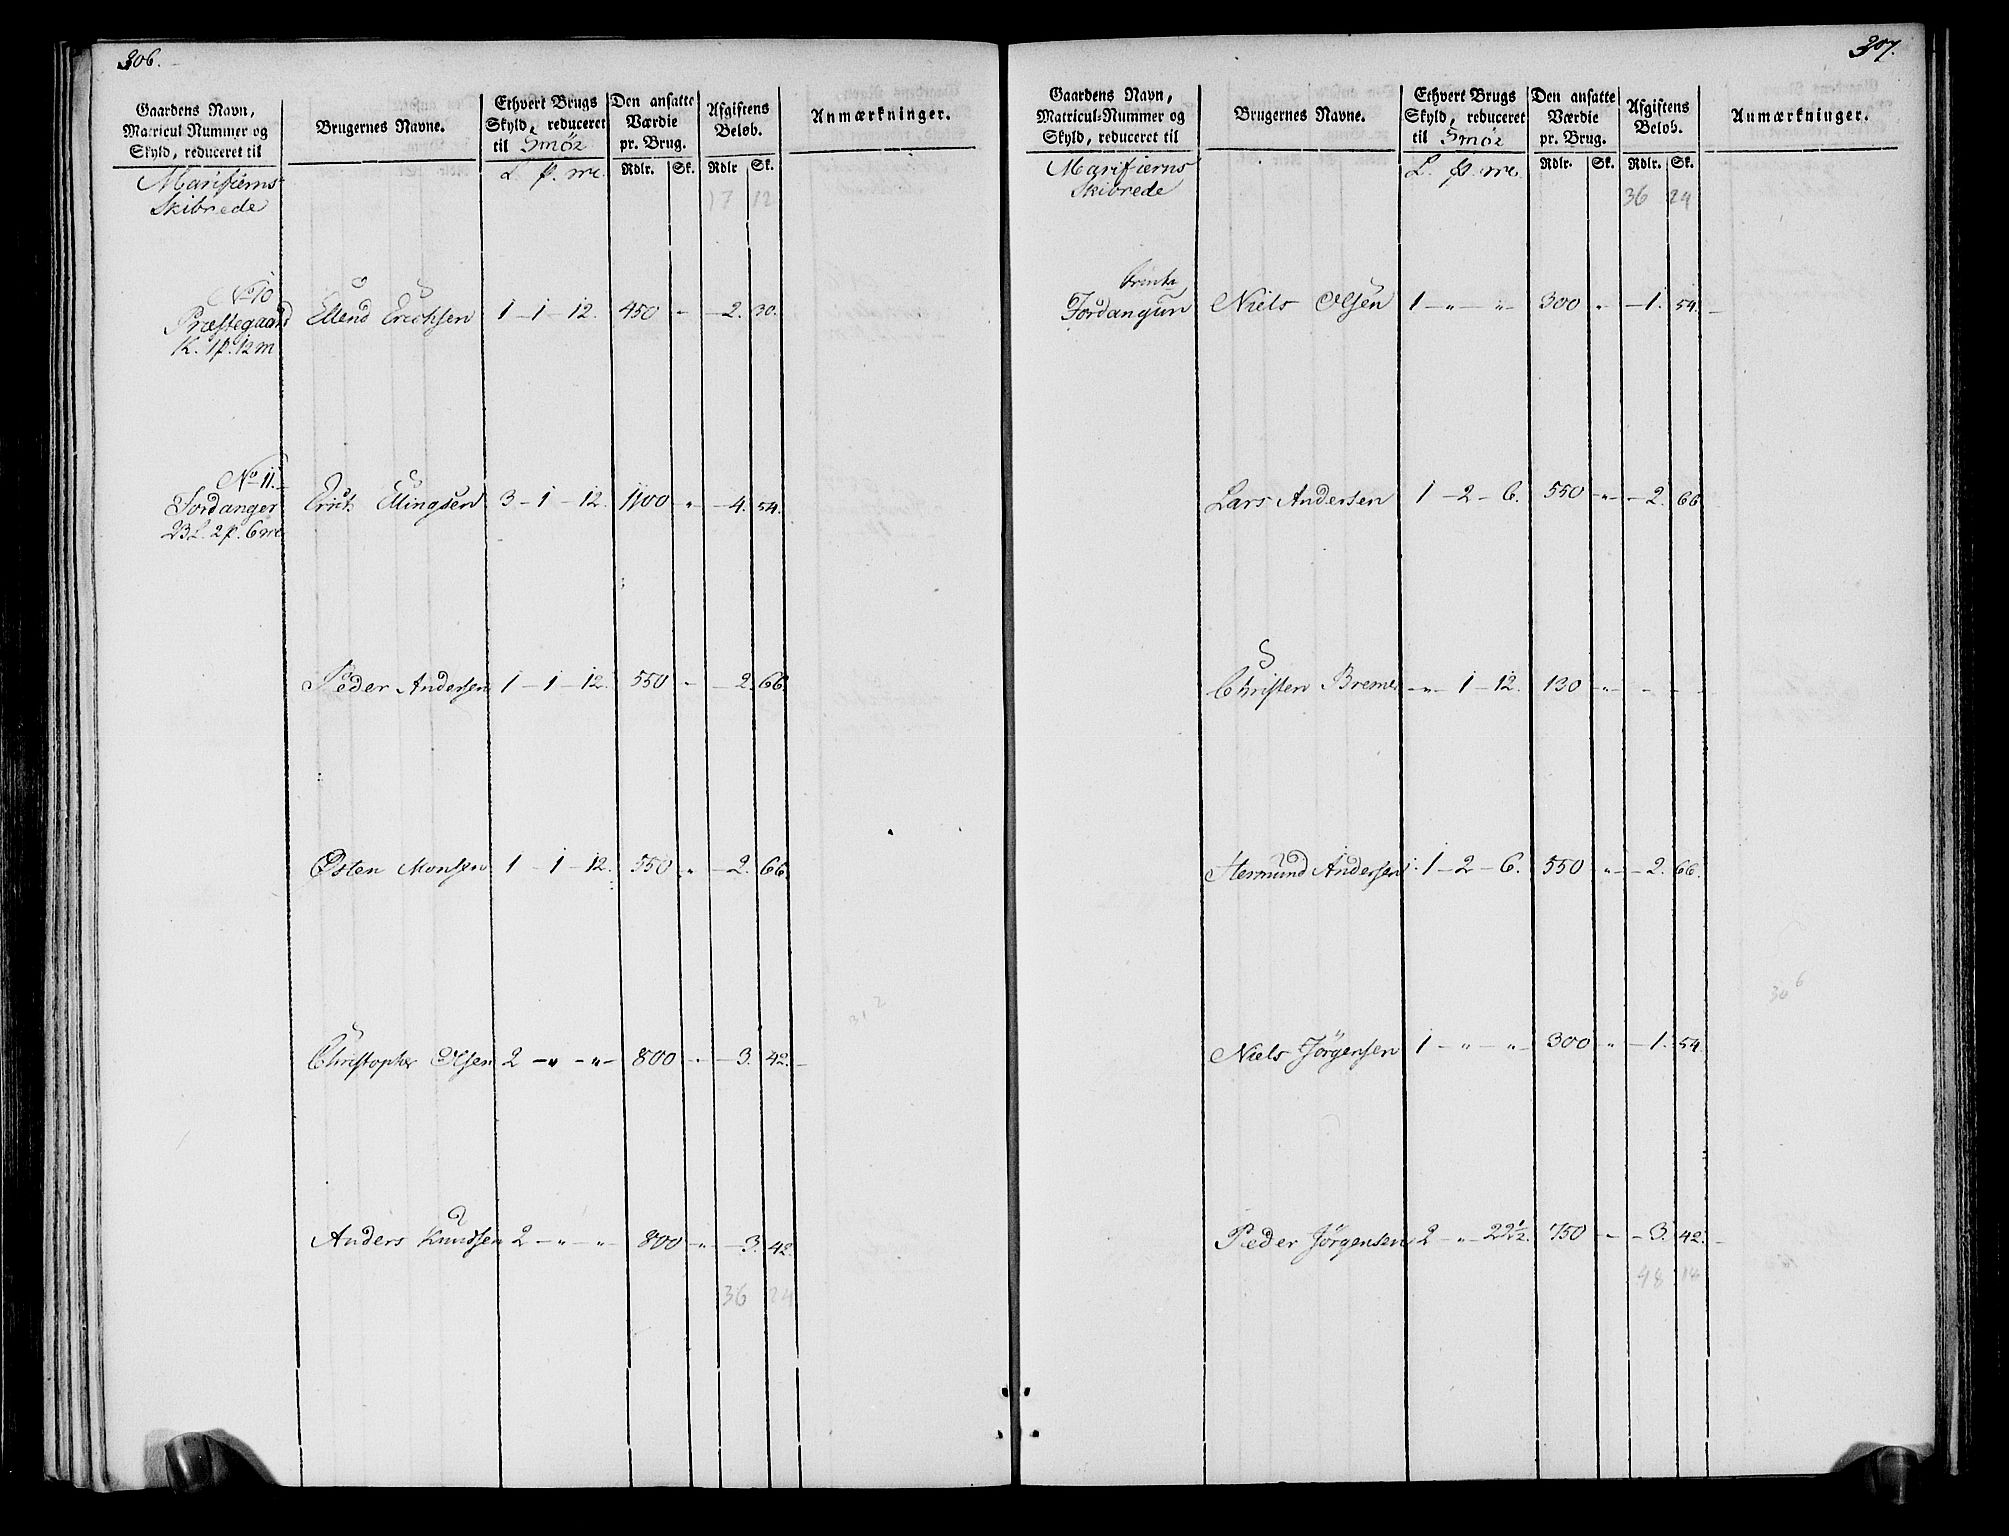 306.
Gaardens Navn, Matricul Nummer og Skyld, reduceret til
Brugernes Navne.
Ethvert Brugs Skyld, reduceret til Smör
Den ansatte Værdie pr. Brug.
Afgiftens Beløb.
Anmærkninger.
L. p. mr.
Rdlr. Sk. Rdlr Sk.
Marifierns
Skibrede
17 12
No 10
Præstegaard Ellend Erichsen 1 - 1 - 12. 450 - - 2. 30.
1L. 1p. 12m
No 11.
Jordanger Erich Ellingsen 3 - 1 - 12. 1100 " - 4. 54.
23L. 2p. 6mr
Peder Andersen 1 - 1 - 12. 550 - - 2. 66.
Østen Monsen 1 - 1 - 12. 550 " - 2. 66.
31 2
Christopher Olsen 2 - " - " - 800 - - 3. 42. -
Anders Knudsen 2 - " - " 800 - " - 3. 42.
36 24
307.
Gaardens Navn, Matricul-Nummer og Skyld, reduceret til
Brugernes Navne.
Ethvert Brugs Skyld, reduceret til Smör
Den ansatte Værdie pr. Brug.
Afgiftens Beløb.
Anmærkninger.
L. p. mr.
Rdlr. Sk. Rdlr. Sk.
Marifierns
Skibrede
36 24
Jordangun Niels Olsen 1 - " - " - 300 " - 1. 54. -
Lars Andersen 1 - 2 - 6. 550 - " - 2. 66
Christen Bremer - " - 1 - 12. 130 - " - - -
Hermund Andersen 1 - 2 - 6. 550 - " - 2. 66.
30 6
Niels Jörgensen 1 - " - " - 300 " - 1. 54
Peder Jörgensen 2 - " - 22½. 750 - - 3. 42. -
48 18